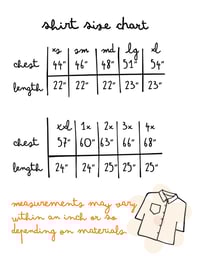 shirt size chart
xs sm md lg xl
chest 44" 46" 48" 51" 54"
length 22" 22" 22" 23" 23"
xxl 1x 2x 3x 4x
chest 57" 60" 63" 66" 68"
length 24" 24" 25" 25" 25"
measurements may vary
within an inch or so
depending on materials